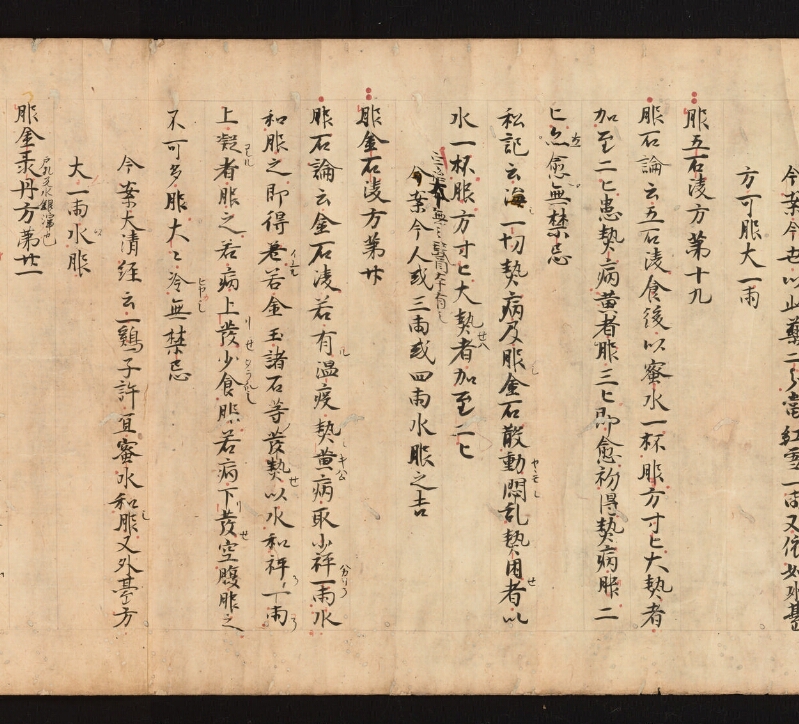 今案今世以此藥二分當紅雪一両又依如外臺
方可服大一兩
服五石淩方第十九
服石論云五石淩食後以蜜水一杯服方寸匕大熱者
加至二匕患熱病黄者服三匕即愈初得熱病服二
匕亦愈無禁忌
私記云海一切熱病及服金石散動悶乱熱困者以
水一杯服方寸匕大熱者加至二匕
今案今人或三兩或四兩水服之吉
服金石淩方第廿
服石論云金石淩若有温疫熱黄病取小秤一兩水
和服之即得若金玉諸石等發熱以水和秤一兩
上凝者服之若病上發少食服若病下發空腹服之
不可多服大々冷無禁忌
今案大清經云一鷄子許宜蜜水和服又外臺方
大一兩水服
服金汞丹方第廿一